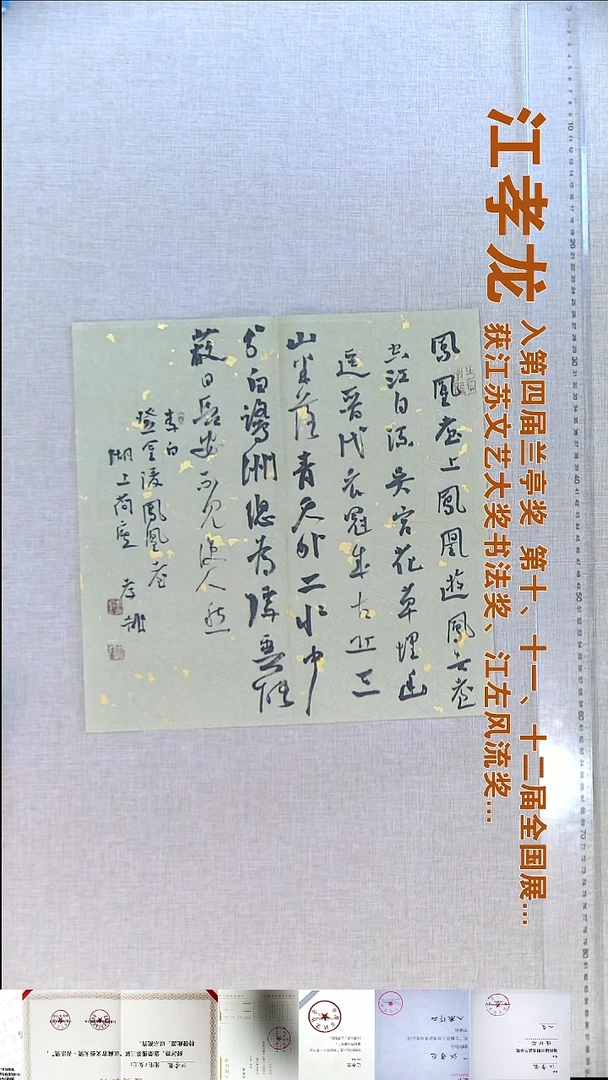 江孝龙
入第四届兰亭奖 第十、十一、十二届全国展...
获江苏文艺大奖书法奖、江左风流奖...
鳳凰臺上鳳凰遊鳳去臺
空江自流吳宮花草埋幽
逕晉代衣冠成古丘三
山半落青天外二水中
分白鷺洲總為浮雲能
蔽日長安不見使人愁
李白
登金陵鳳凰臺
湖上荷 孝龍